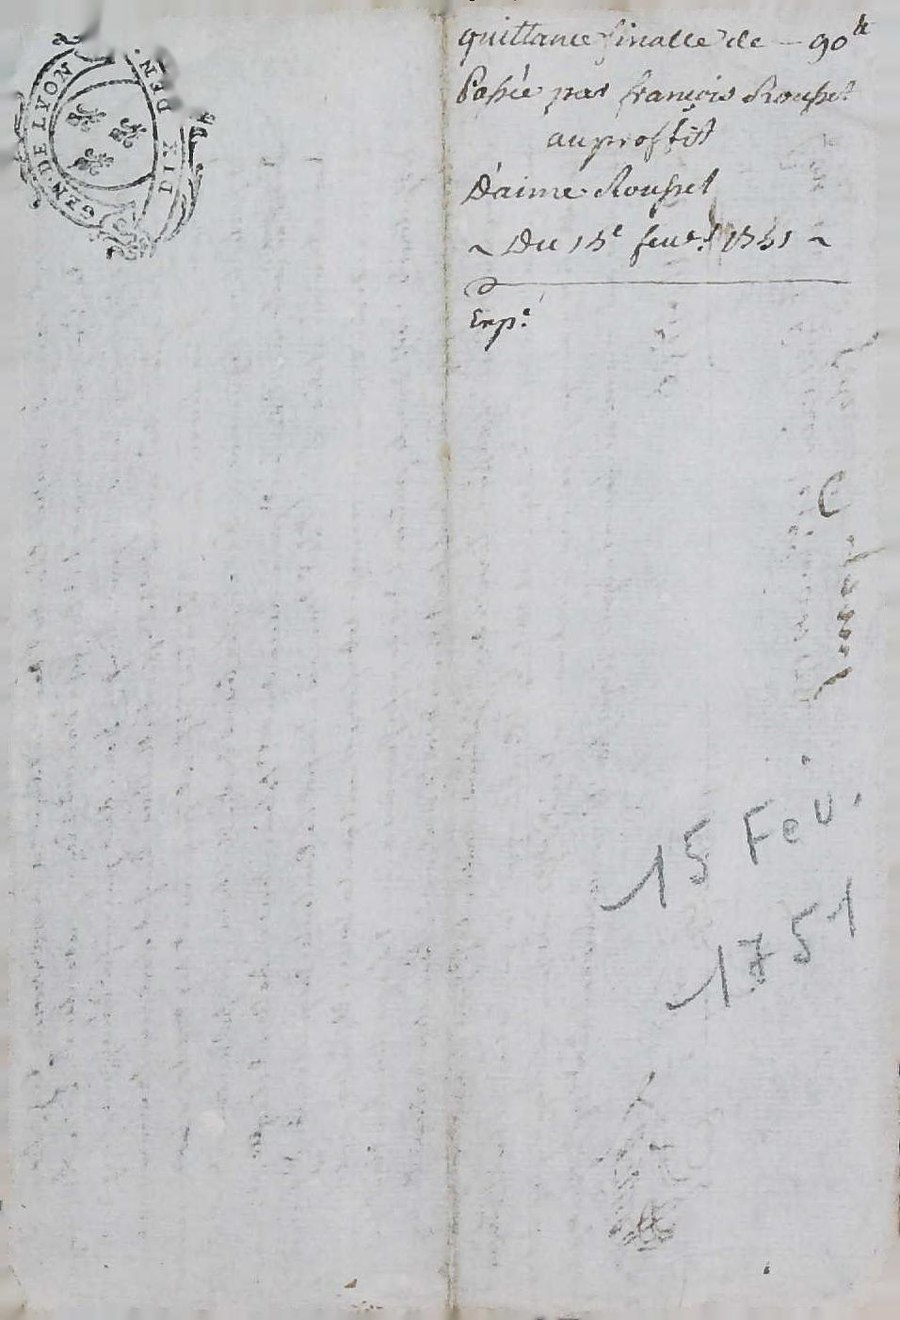 GEN DE LYON
DIX DEN
quittance finalle de — 90ᵗᵗ
Passée par françois Rousset
au proffit
D'aimé Rousset
~ Du 15ᵉ feuᵉʳ 1751 ~
Expᵉ
15 Fev.
1751